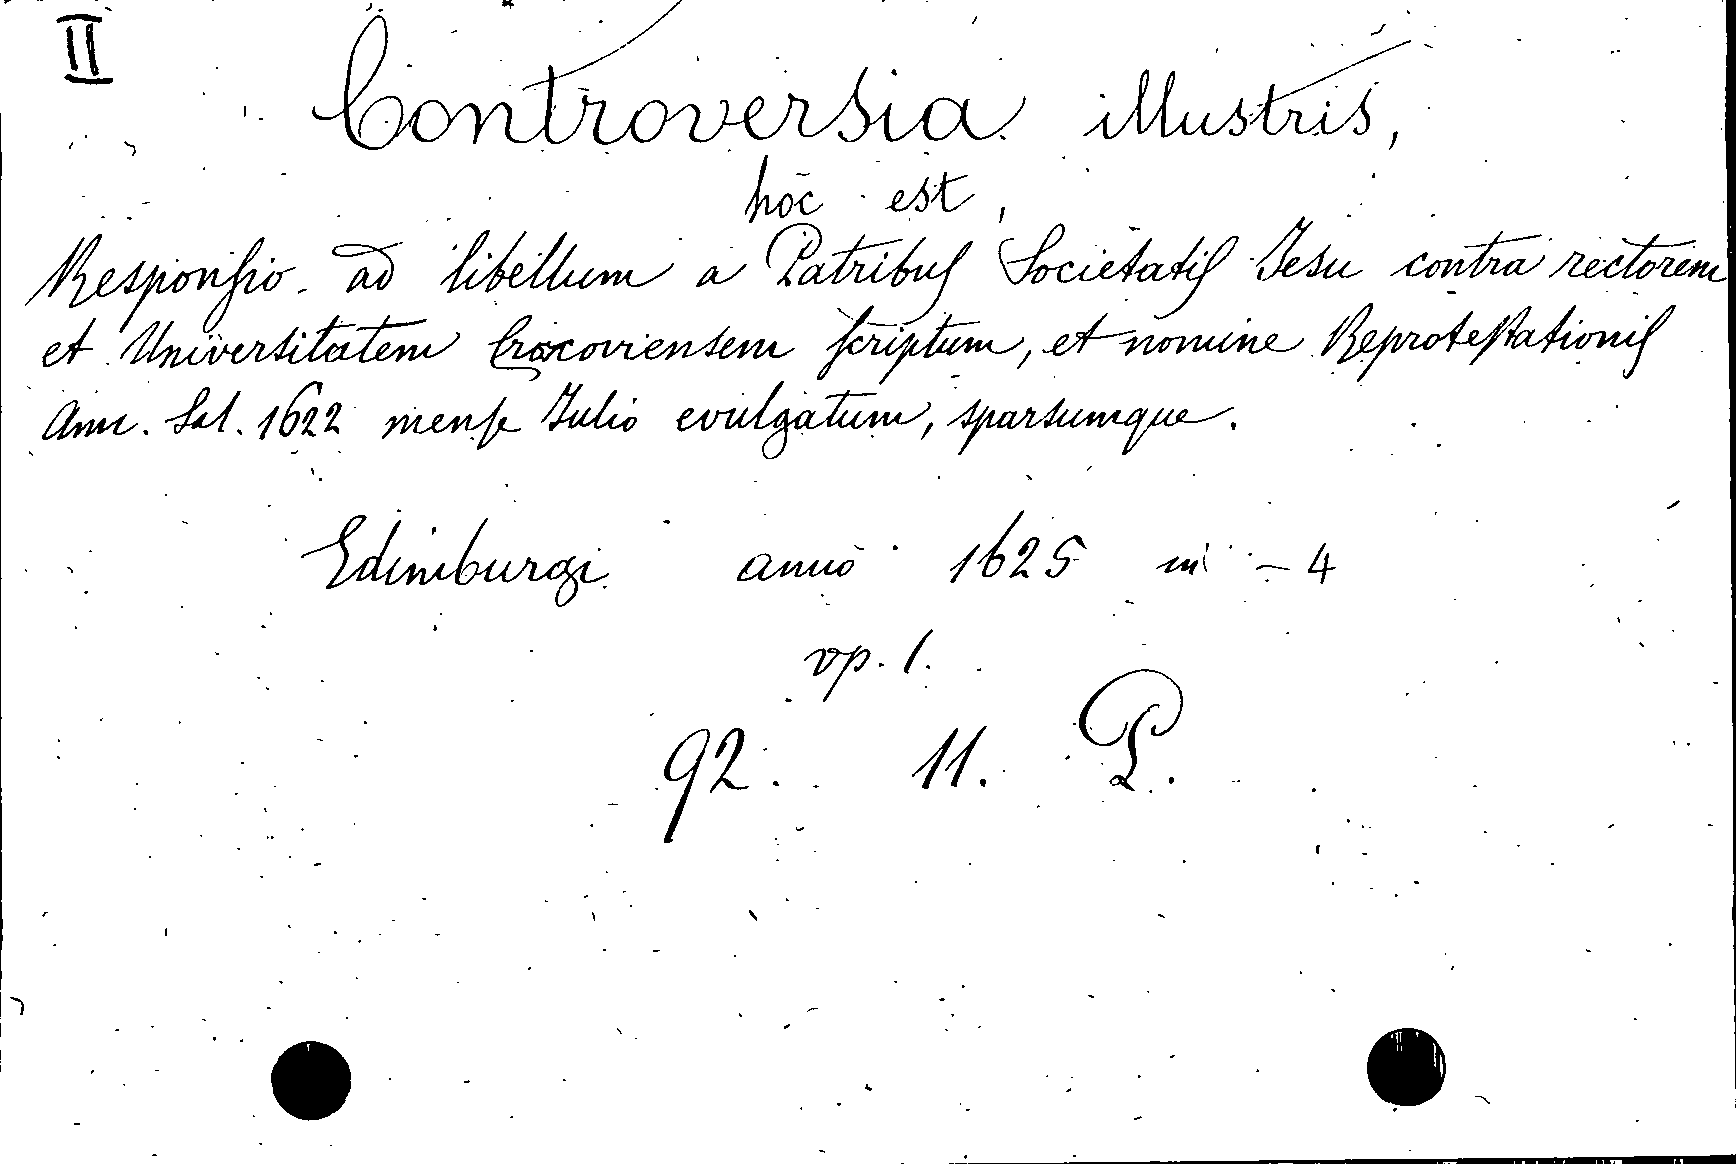 II
Controversia illustris,
hoc est,
Responsio ad libellum a Patribus Societatis Iesu contra rectorem
et Universitatem Cracoviensem scriptum, et nomine Reprotestationis
Ann. Sal. 1622 mense Iulio evulgatum, sparsumque.
Edimburgi anno 1625 in - 4
vp. 1.
92. 11. P.